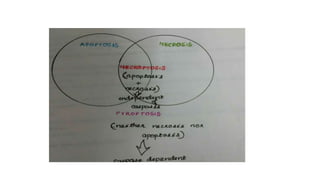 APOPTOSIS NECROSIS
NECROPTOSIS
(apoptosis
+
necrosis)
independent
caspase
PYROPTOSIS
(neither necrosis nor
apoptosis)
caspase dependent